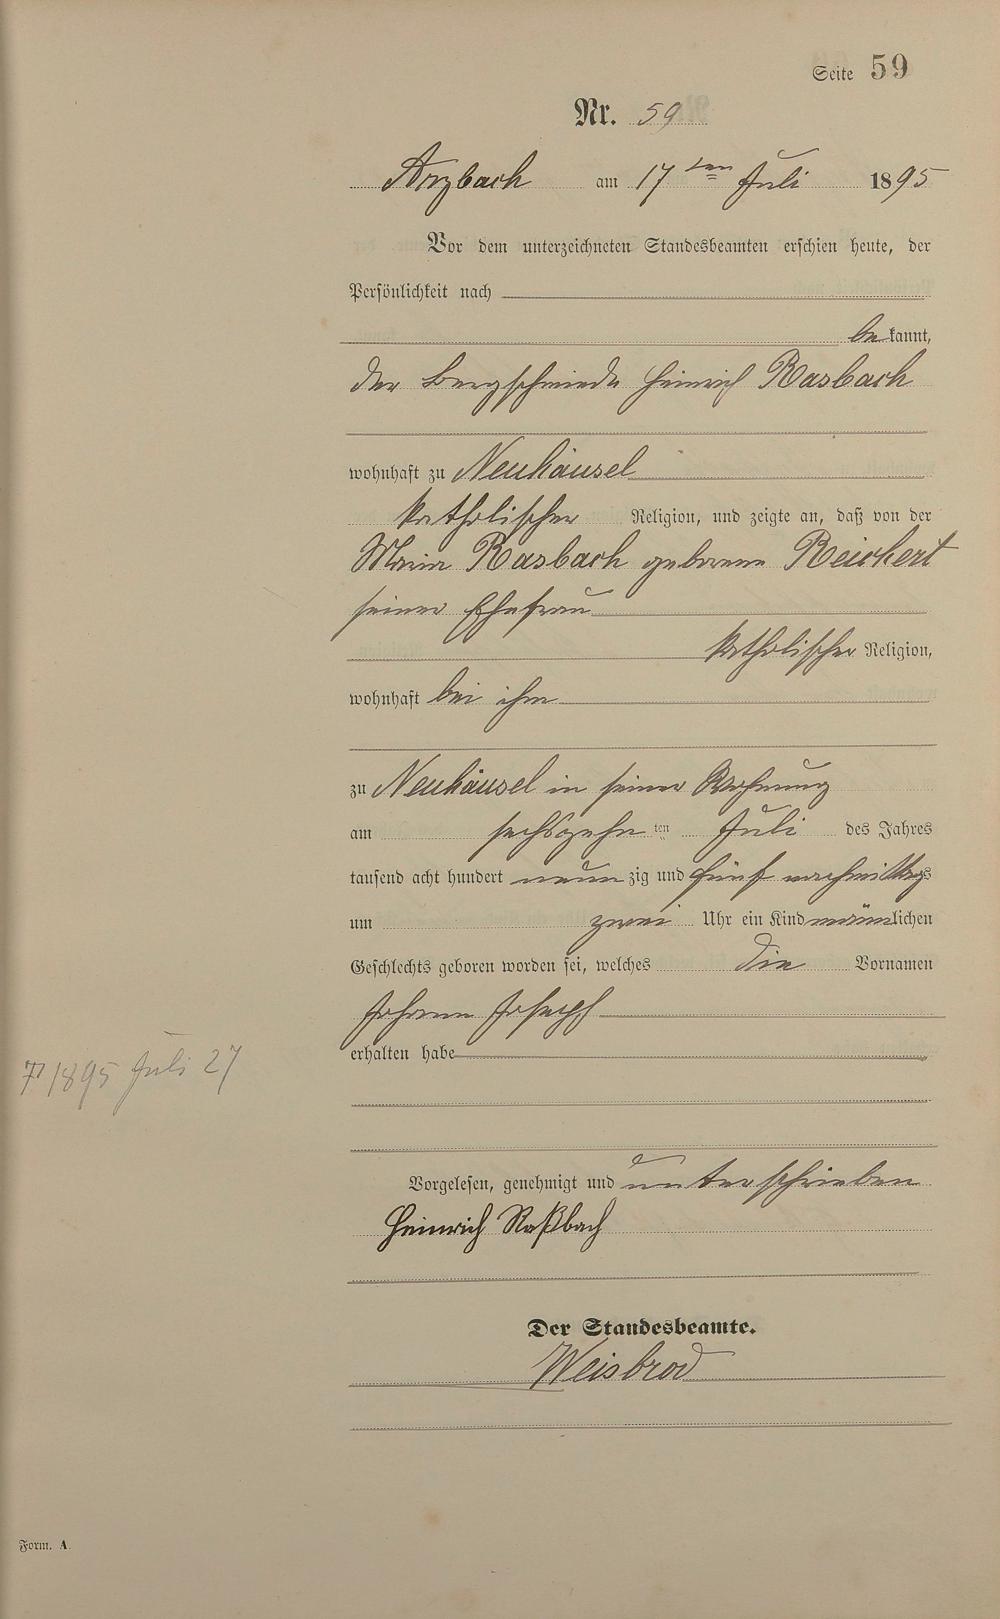 Seite 59
Nr. 59
Arzbach am 17 ten Juli 1895
Vor dem unterzeichneten Standesbeamten erschien heute, der
Persönlichkeit nach
bekannt,
der Bergschmiede Heinrich Rasbach
wohnhaft zu Neuhäusel
katholischer Religion, und zeigte an, daß von der
Maria Rasbach geborene Reichert
seiner Ehefrau
katholischer Religion,
wohnhaft bei ihm
zu Neuhäusel in seiner Wohnung
am sechszehn ten Juli des Jahres
tausend acht hundert neunzig und fünf nachmittags
um zwei Uhr ein Kind männlichen
Geschlechts geboren worden sei, welches die Vornamen
Johann Joseph
erhalten habe
† 1895 Juli 27
Vorgelesen, genehmigt und unterschrieben
Heinrich Raßbach
Der Standesbeamte.
Weisbrod
Form. A.